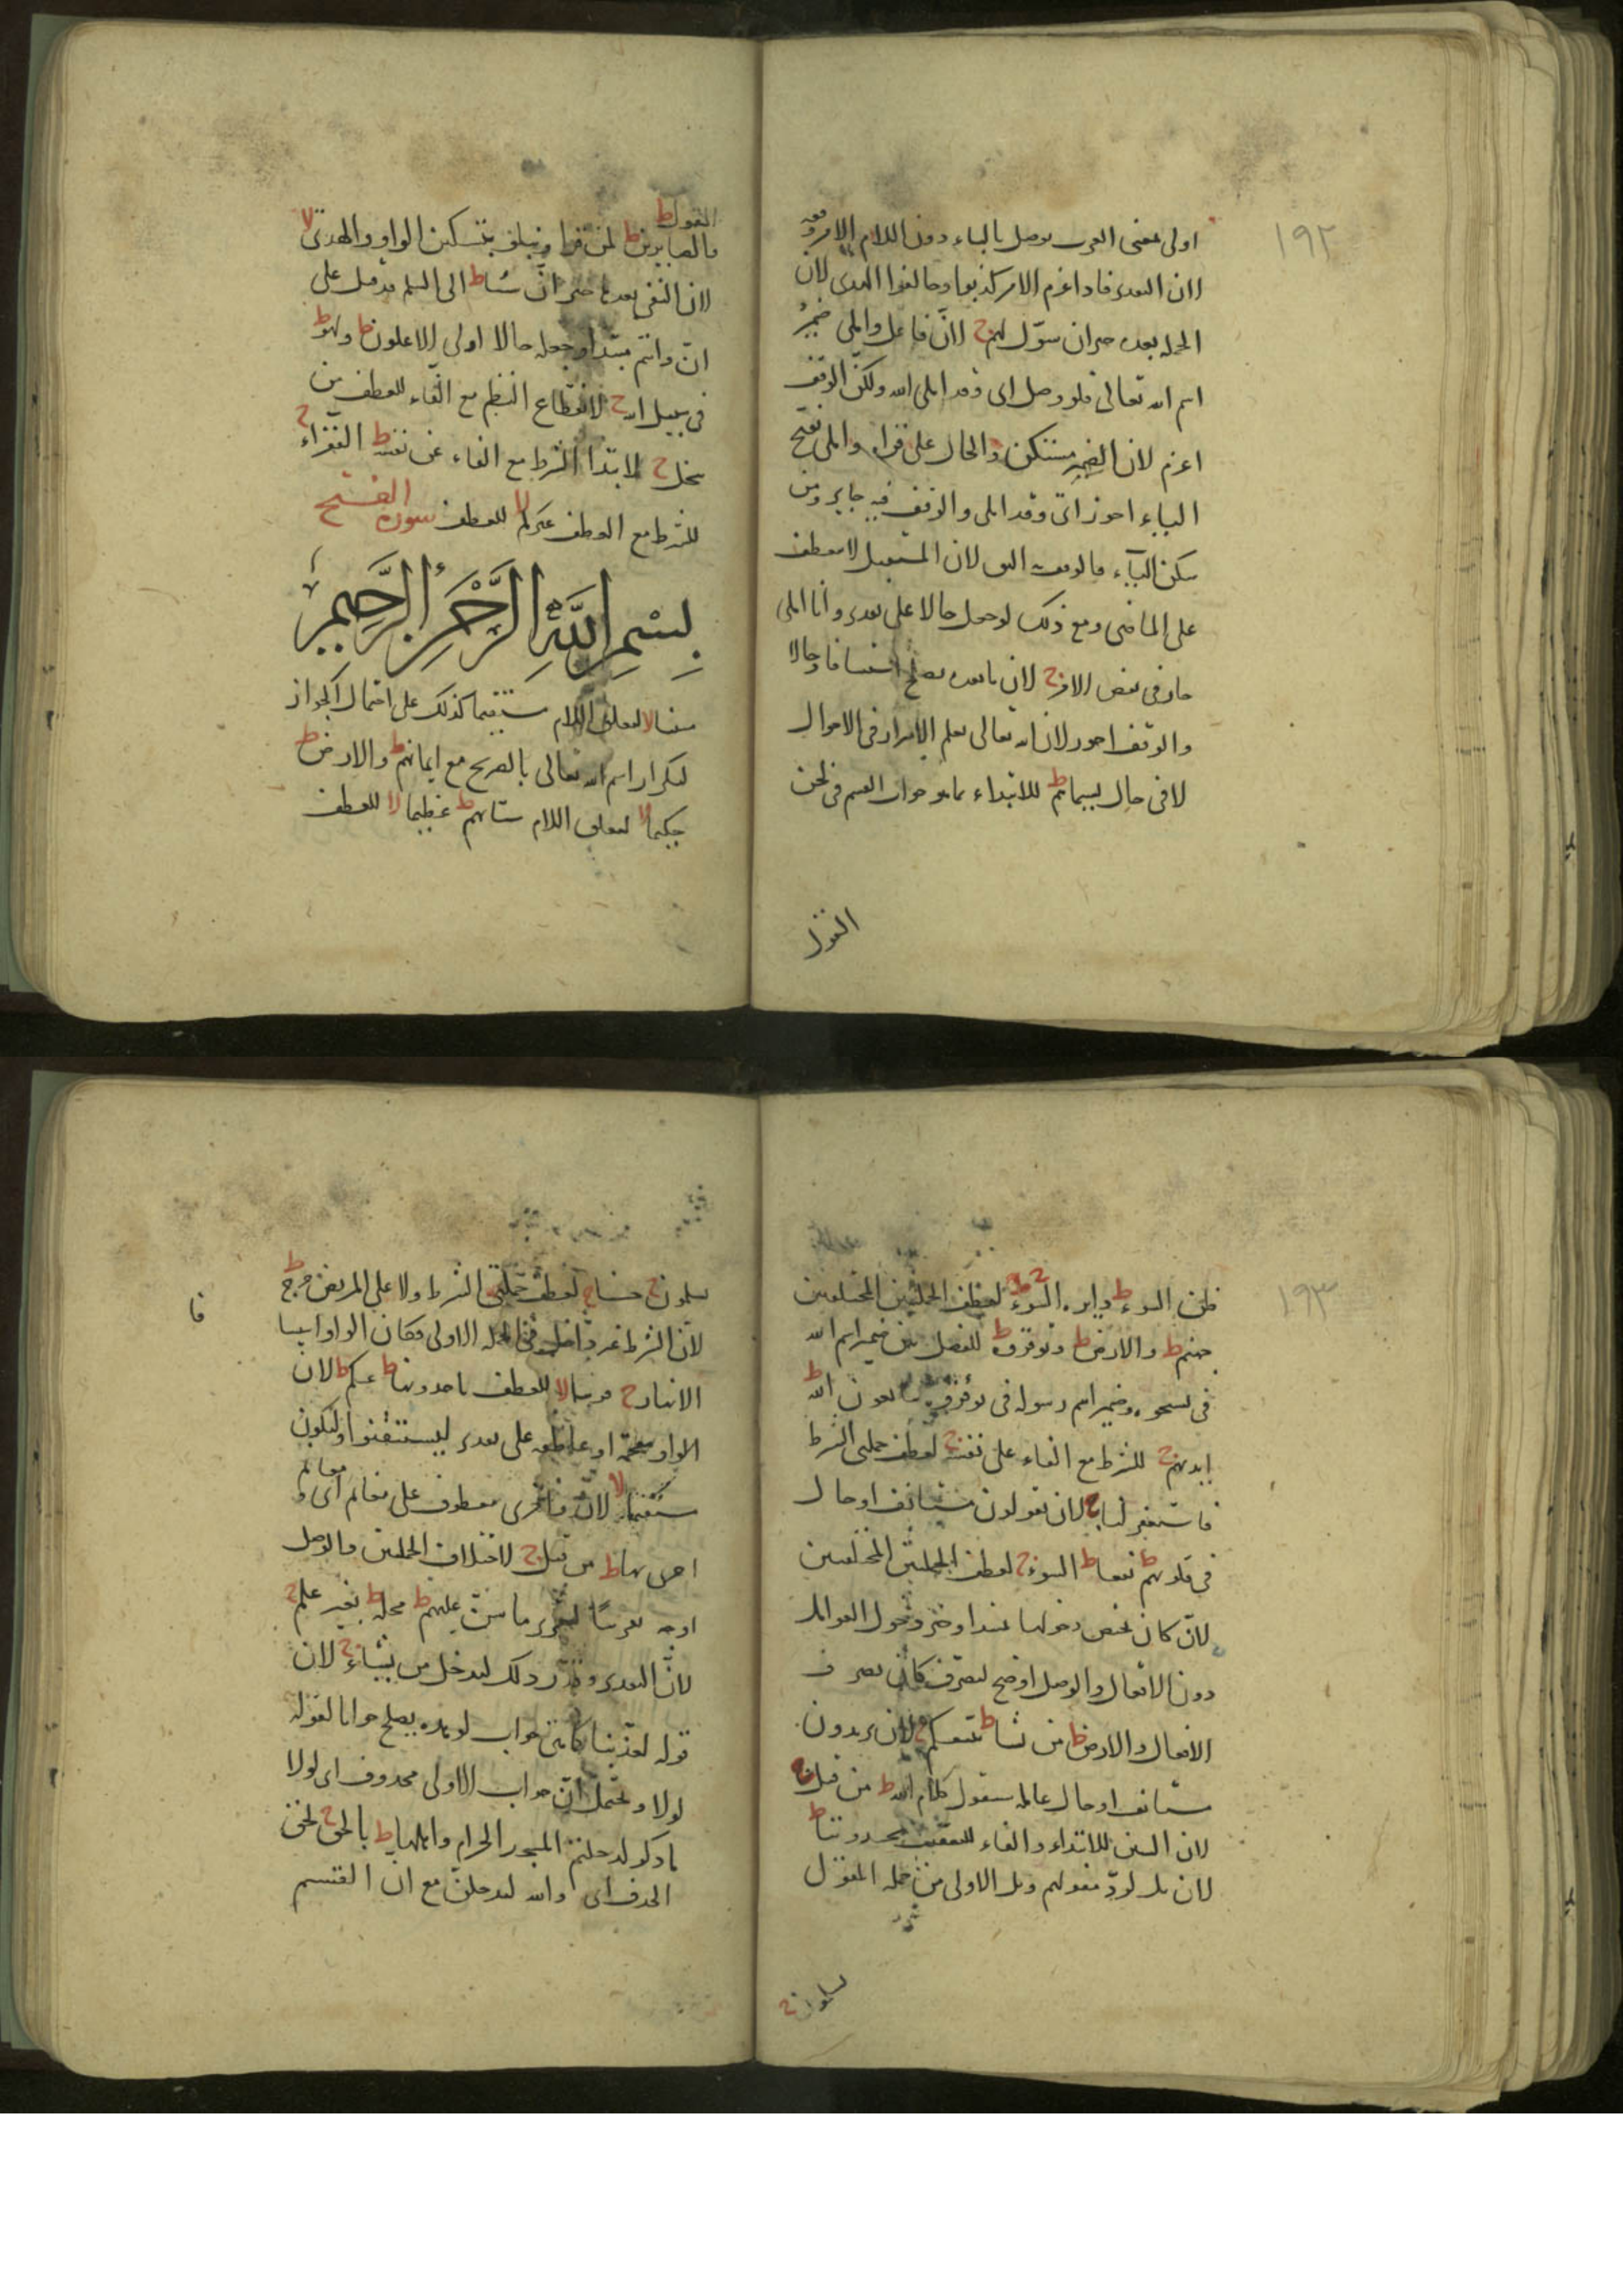 ١٩٢
اولى لمعنى القرب يوصل بالباء دون اللام الامر وقفه
لان التقدير فاذا عزم الامر كذبوا وخالفوا الهدى لان
الجملة بعده خبر ان سوّل لهم ج لان فاعل واملى ضمير
اسم الله تعالى فلو وصل اى وقد املى الله ولكن الوقف
اعزم لان الضمير مستكن والحال على قراءة واملى بفتح
الياء اجوز اى وقد املى والوقف فيه جايز ومن
سكن الياء فالوقف اليق لان المستقبل لا يعطف
على الماضى ومع ذلك لو جعل حالا على تقدير وانا املى
جاز فى بعض الامر ج لان ما بعده يصلح استينافا وحالا
والوقف اجوز لان الله تعالى يعلم الاسرار فى الاحوال
لا فى حال بسيماهم ط للابتداء بما هو جواب القسم فى لحن
القول
القول ط
والصابرين ط لمن قرا ونبلو بتسكين الواو والهدى لا
لان النفى بعدها خبر انّ شيا ط الى السلم قد قيل على
انّ وانتم مبتدا وجعله حالا اولى الاعلون ط ولهو ط
فى سبيل الله ج لانقطاع النظم مع الفاء للعطف من
يبخل ج لابتدا الشرط مع الفاء عن نفسه ط الفقراء ج
للشرط مع العطف غيركم لا للعطف سورة الفتح
بسم الله الرحمن الرحيم
مبينا لا لتعلق اللام مستقيما كذلك على احتمال الجواز
لتكرار اسم الله تعالى بالصريح مع ايمانهم ط والارض ط
حكيما لا لتعلق اللام سيّاتهم ط عظيما لا للعطف
١٩٣
ظن السوء ط دايرة السوء ج لعطف الجملتين المختلفتين
جهنم ط والارض ط وتوقروه ط للفصل بين ضمير اسم الله
فى تسبحوه وضمير اسم رسوله فى توقروه يبايعون الله ط
ايديهم ج للشرط مع الفاء على نفسه ج لعطف جملتى الشرط
فاستغفر لنا ج لان يقولون مستانف او حال
فى قلوبهم ط نفعا ط السوء ج لعطف الجملتين المختلفتين
لان كان يختص دخولها بمبتدا وخبر دخول العوامل
دون الافعال والوصل اوضح لتصرف كان تصرف
الافعال والارض ط من يشا ط نتبعكم ج لان يريدون
مستانف او حال عامله سيقول كلام الله ط من قبل ج
لان السين للابتداء والفاء للتعقيب تحسدوننا ط
لان بل لردّ مقولهم وبل الاولى من جملة المقول
يسلمون ج
يسلمون ج حسنا ج لعطف جملتى الشرط ولا على المريض حرج ط
لان الشرط غير داخل فى الجملة الاولى فكان الواو استينافا
الانهار ج قريبا لا للعطف ياخذونها ط عنكم ط لان
الواو مقحمة او عاطفة على تقدير ليستيقنوا ولتكون
مستقيما لا لان واخرى معطوف على مغانم اى و مغانم
اخرى بها ط من قبل ج لاختلاف الجملتين والوصل
اوجه تقريبا لتقرير ما منّ عليهم ط محله ط بغير علم ج
لانّ التقدير وقدّر ذلك ليدخل من يشاء ج لان
قوله لعذّبنا كانّ جواب لو بعده يصلح جوابا لقوله
لولا ويحتمل انّ جواب الاولى محذوف اى لولا
ما ذكر لدخلتم المسجد الحرام واهلها ط بالحق ج لحق
الحذف اى والله لتدخلن مع ان القسم